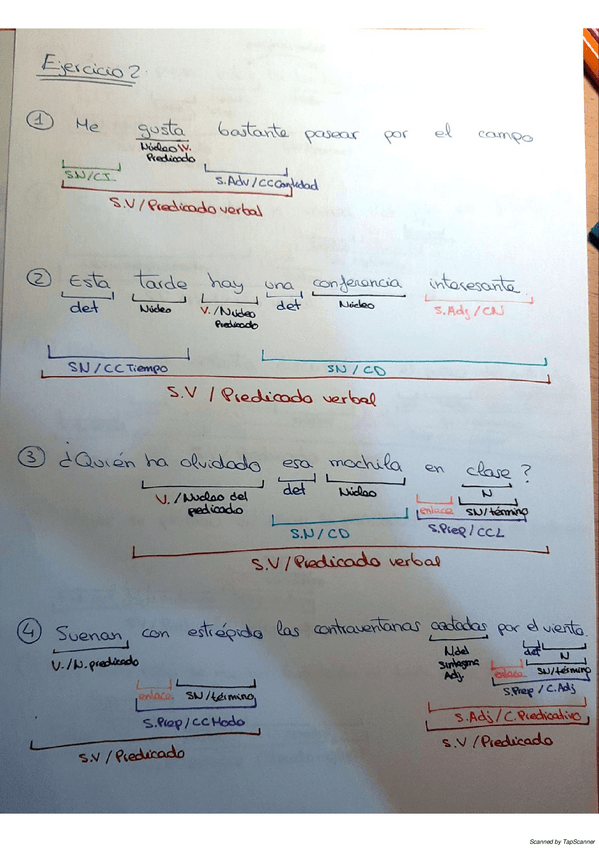 Ejercicio 2.
① Me gusta bastante pasear por el campo
Núcleo V.
Predicado
SN/CI
S.Adv/CCCantidad
S.V/Predicado verbal
② Esta tarde hay una conferencia interesante
det Núcleo V./Núcleo det Núcleo S.Adj/CN
Predicado
SN/CCTiempo SN/CD
S.V / Predicado verbal
③ ¿Quién ha olvidado esa mochila en clase?
V./Nucleo del det Núcleo N
predicado enlace SN/término
S.N/CD S.Prep/CCL
S.V/Predicado verbal
④ Suenan con estrépido las contraventanas por el viento.
V./N.predicado N/del det N
Sintagma enlace SN/término
Adj. S.Prep/C.Adj
enlace SN/término
S.Prep/CCModo S.Adj/C.Predicativo
S.V/Predicado S.V/Predicado
Scanned by TapScanner